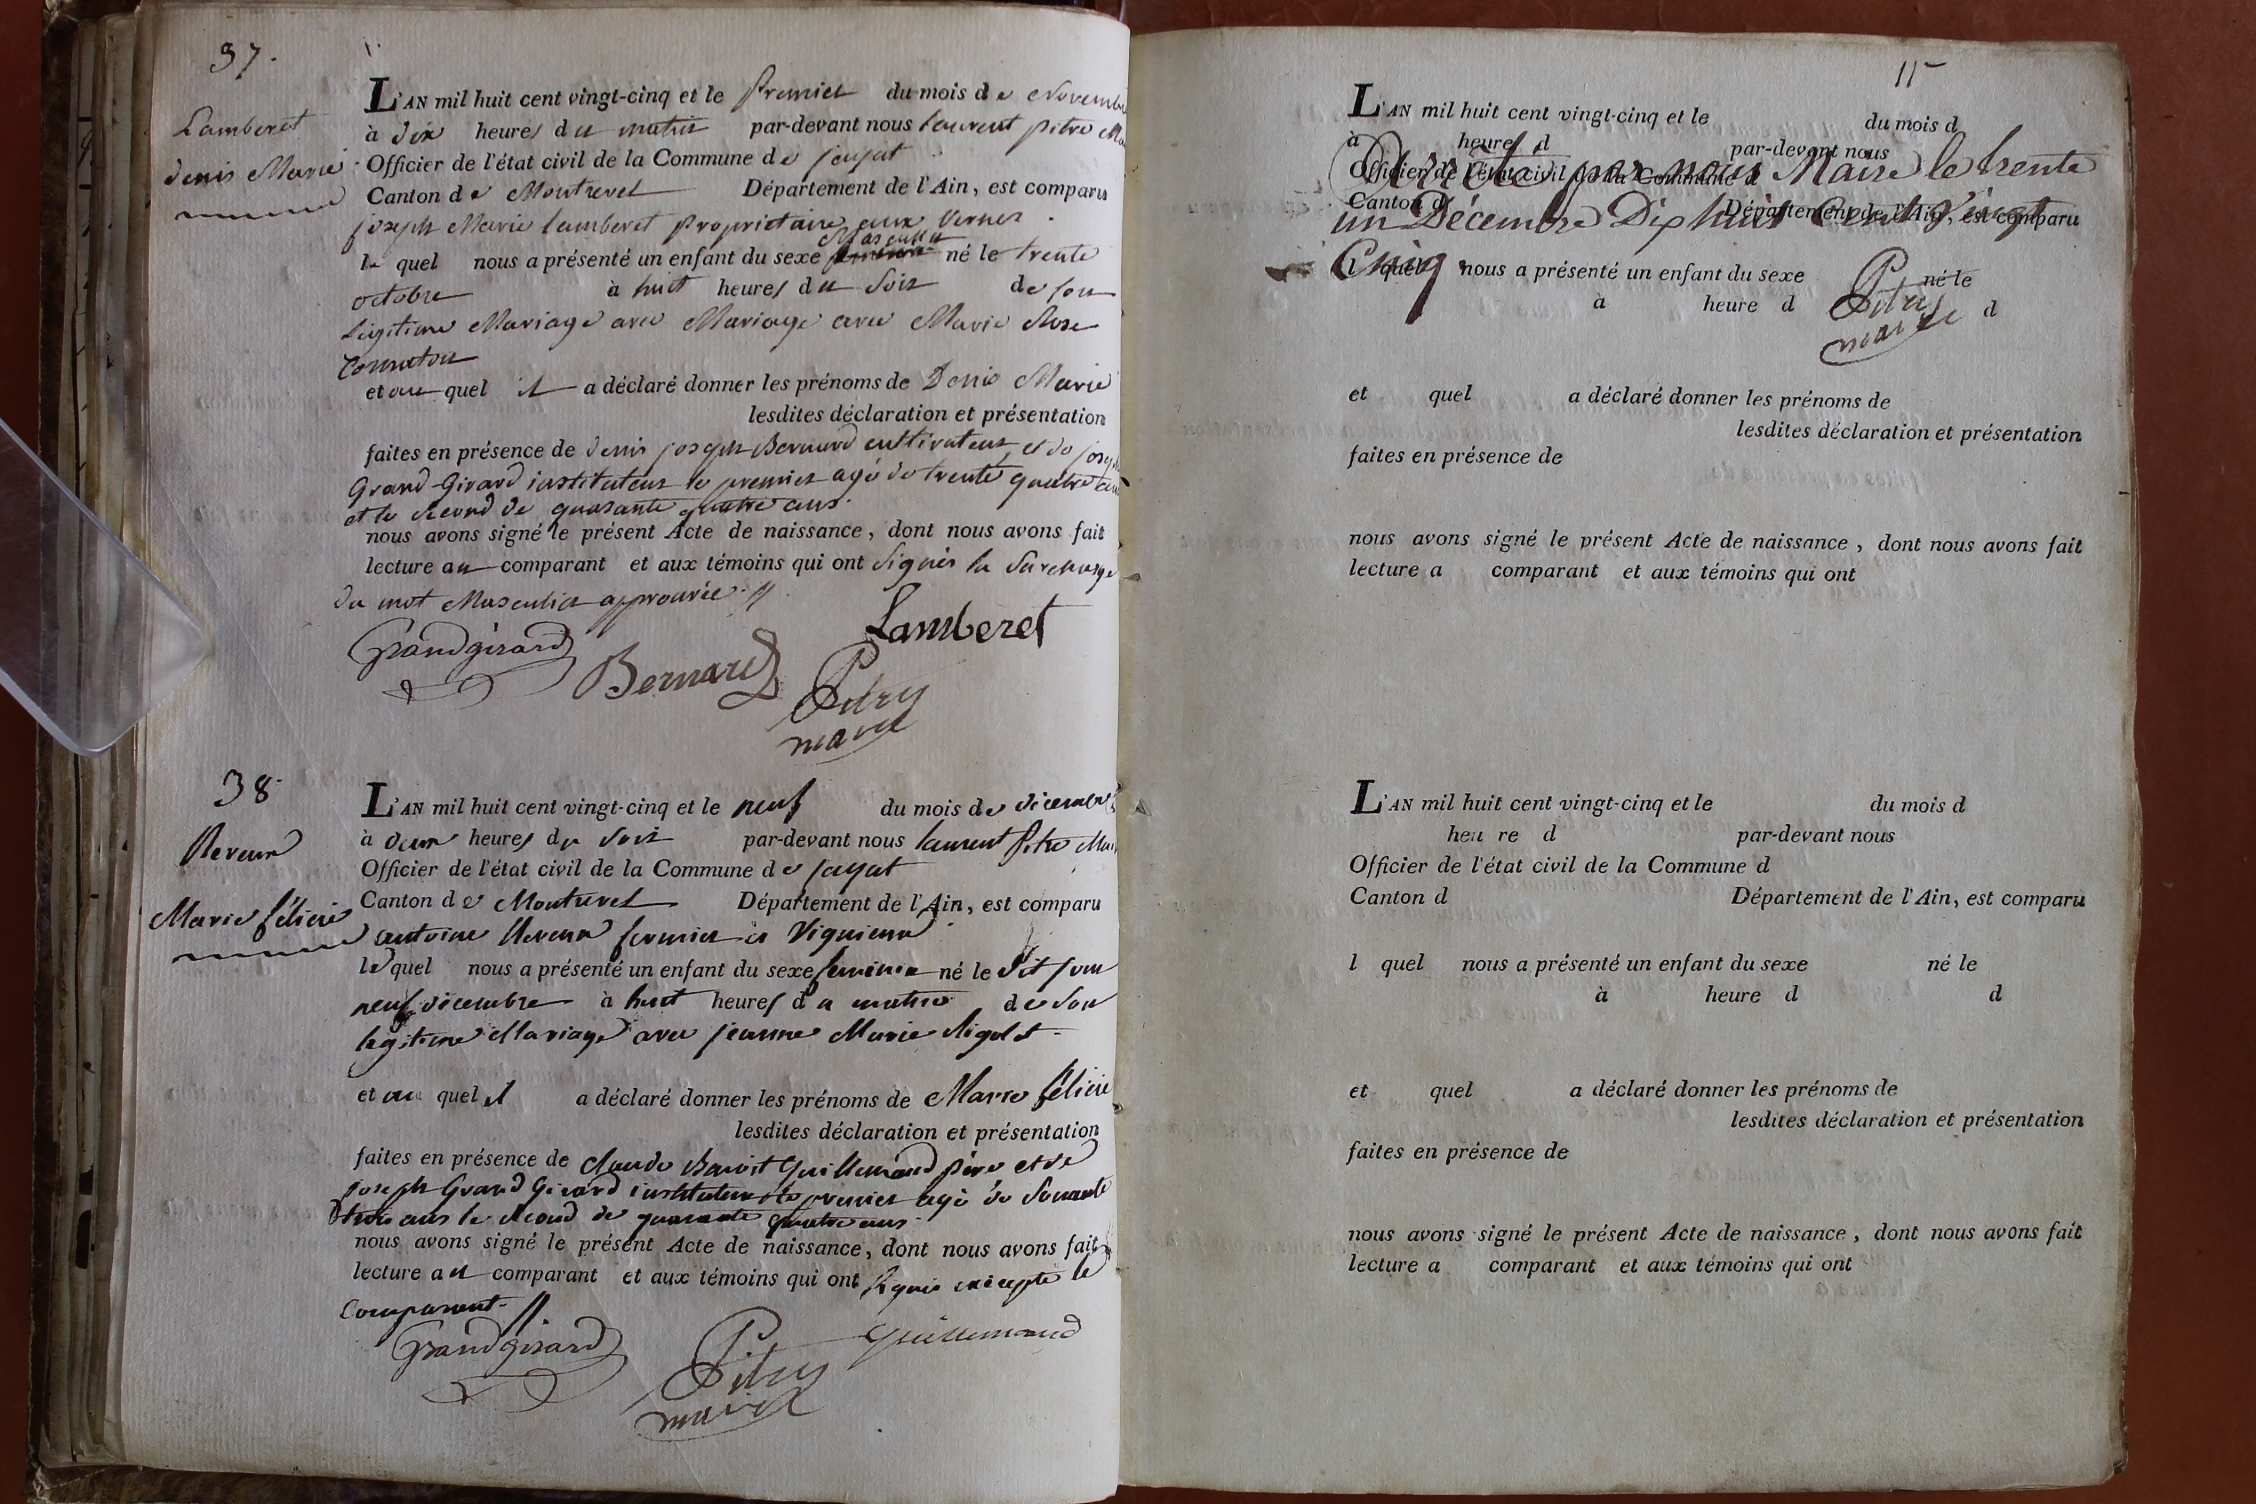 37.
Lamberet
denis Marie
L'AN mil huit cent vingt-cinq et le Premier du mois de Novembre
à dix heures du matin par-devant nous Laurent pitre
Officier de l'état civil de la Commune de jayat
Canton de Montrevel Département de l'Ain, est comparu
joseph Marie lamberet propriétaire aux Vernes
le quel nous a présenté un enfant du sexe Masculin né le trente
octobre à huit heures du Soir de son
Légitime Mariage avec Mariage avec Marie Rose
et au quel il a déclaré donner les prénoms de Denis Marie
lesdites déclaration et présentation
faites en présence de denis joseph Bernard cultivateur et de joseph
Grand-Girard instituteur le premier agé de trente quatre ans
et le second de quarante quatre ans.
nous avons signé le présent Acte de naissance, dont nous avons fait
lecture au comparant et aux témoins qui ont Signés la Surcharge
du mot Masculin approuvée //
Lamberet
Grandgirard
Bernard
Pitre
maire
38.
Marie félicie
L'AN mil huit cent vingt-cinq et le neuf du mois de décembre
à deux heures du Soir par-devant nous laurent Pitre
Officier de l'état civil de la Commune de jayat
Canton de Montrevel Département de l'Ain, est comparu
antoine fermier à
le quel nous a présenté un enfant du sexe féminin né le dit jour
neuf décembre à huit heures du matin de Son
légitime Mariage avec jeanne Marie
et au quel il a déclaré donner les prénoms de Marie félicie
lesdites déclaration et présentation
faites en présence de Claude Benoit Guillemaud père et de
joseph Grand Girard instituteur le premier agé de Soixante
trois ans le second de quarante quatre ans.
nous avons signé le présent Acte de naissance, dont nous avons fait
lecture au comparant et aux témoins qui ont Signé excepté le
Comparant. //
Grandgirard
Pitre
maire
Guillemaud
L'AN mil huit cent vingt-cinq et le du mois d
à heure d par-devant nous
Officier de l'état civil de la Commune d
Canton d Département de l'Ain, est comparu
Arrêté par nous Maire le trente
un Décembre Dix huit Cent Vingt
Cinq
l quel nous a présenté un enfant du sexe né le
à heure d d
Pitre
maire
et quel a déclaré donner les prénoms de
lesdites déclaration et présentation
faites en présence de
nous avons signé le présent Acte de naissance, dont nous avons fait
lecture a comparant et aux témoins qui ont
L'AN mil huit cent vingt-cinq et le du mois d
heure d par-devant nous
Officier de l'état civil de la Commune d
Canton d Département de l'Ain, est comparu
l quel nous a présenté un enfant du sexe né le
à heure d d
et quel a déclaré donner les prénoms de
lesdites déclaration et présentation
faites en présence de
nous avons signé le présent Acte de naissance, dont nous avons fait
lecture a comparant et aux témoins qui ont